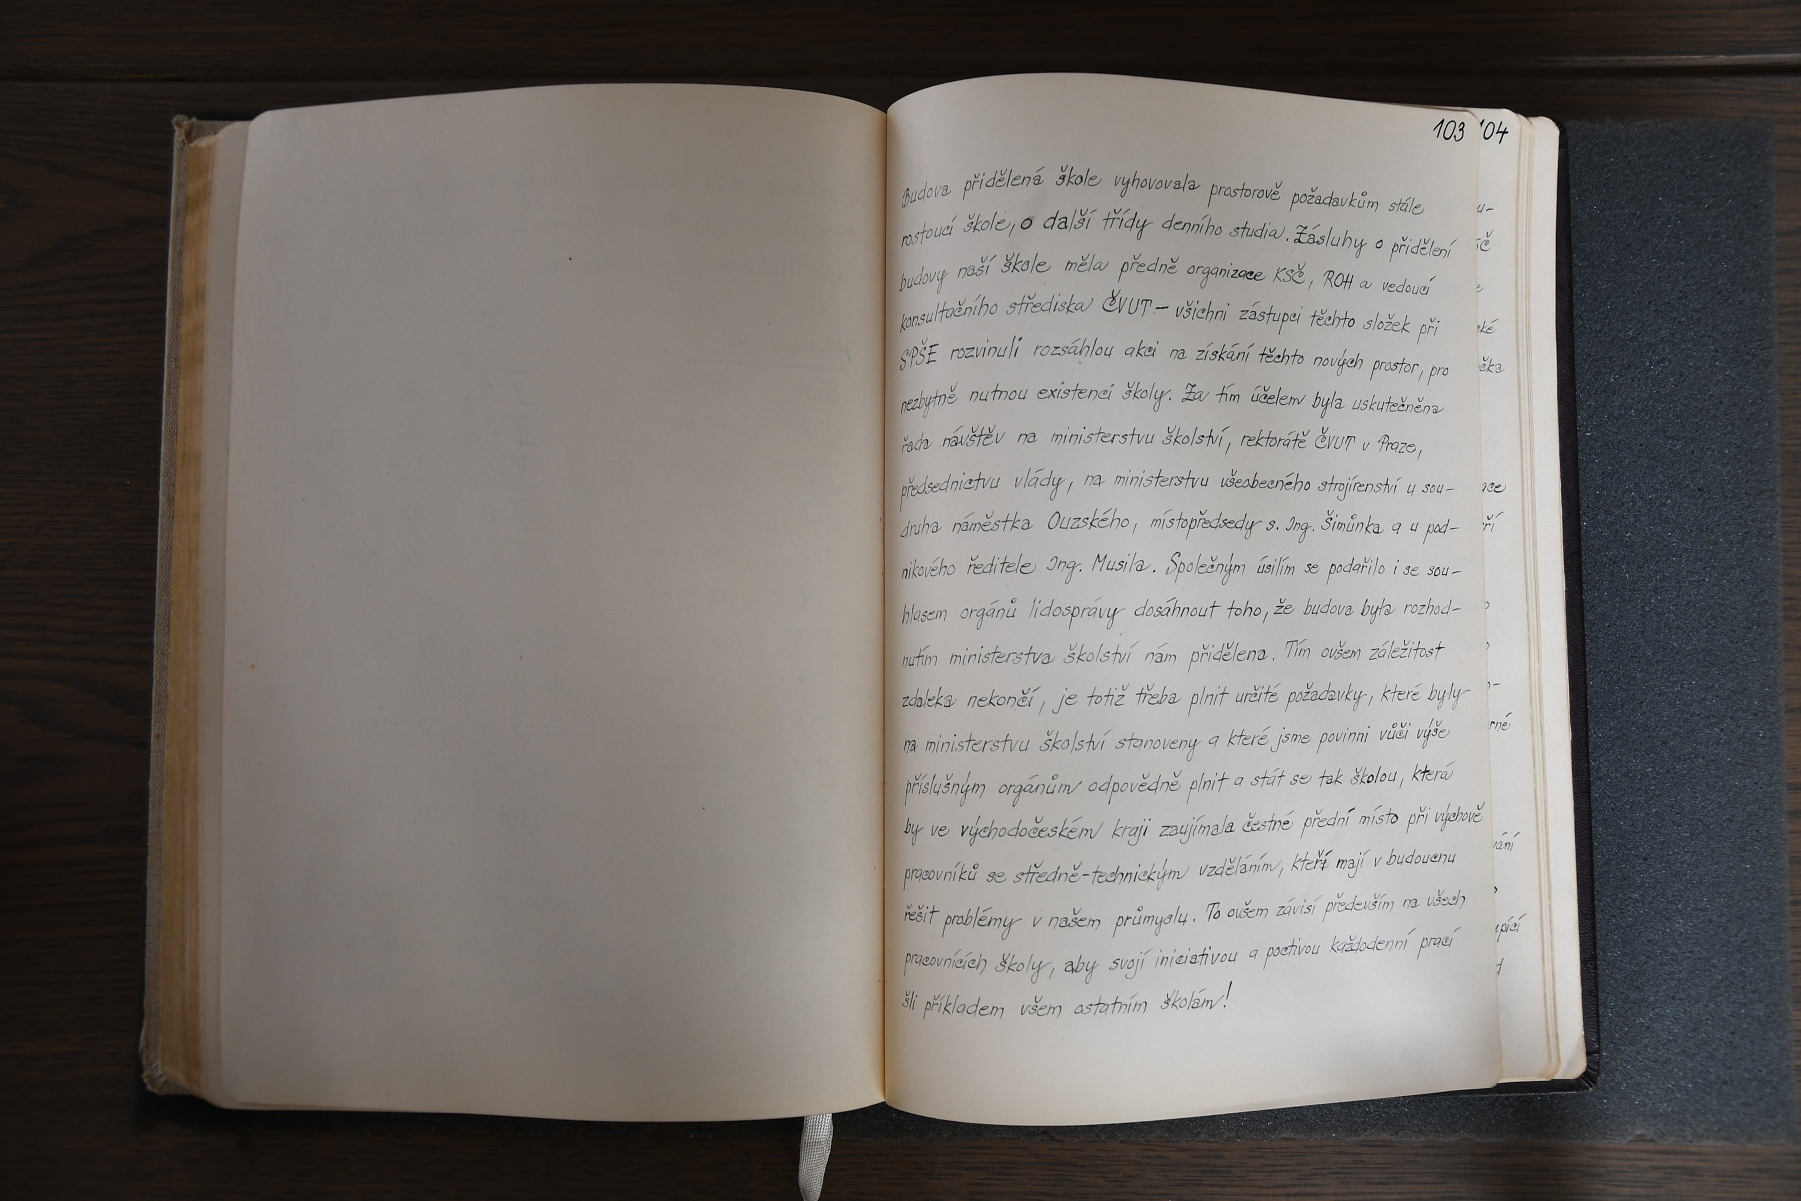 103
104
Budova přidělená škole vyhovovala prostorově požadavkům stále
rostoucí škole, o další třídy denního studia. Zásluhy o přidělení
budovy naší škole měla předně organizace KSČ, ROH a vedoucí
konsultačního střediska ČVUT – všichni zástupci těchto složek při
SPŠE rozvinuli rozsáhlou akci na získání těchto nových prostor, pro
nezbytně nutnou existenci školy. Za tím účelem byla uskutečněna
řada návštěv na ministerstvu školství, rektorátě ČVUT v Praze,
předsednictvu vlády, na ministerstvu všeobecného strojírenství u sou-
druha náměstka Ouzského, místopředsedy s. Ing. Šimůnka a u pod-
nikového ředitele Ing. Musila. Společným úsilím se podařilo i se sou-
hlasem orgánů lidosprávy dosáhnout toho, že budova byla rozhod-
nutím ministerstva školství nám přidělena. Tím ovšem záležitost
zdaleka nekončí, je totiž třeba plnit určité požadavky, které byly
na ministerstvu školství stanoveny a které jsme povinni vůči výše
příslušným orgánům odpovědně plnit a stát se tak školou, která
by ve východočeském kraji zaujímala čestné přední místo při výchově
pracovníků se středně-technickým vzděláním, kteří mají v budoucnu
řešit problémy v našem průmyslu. To ovšem závisí především na všech
pracovnících školy, aby svojí iniciativou a poctivou každodenní prací
šli příkladem všem ostatním školám!